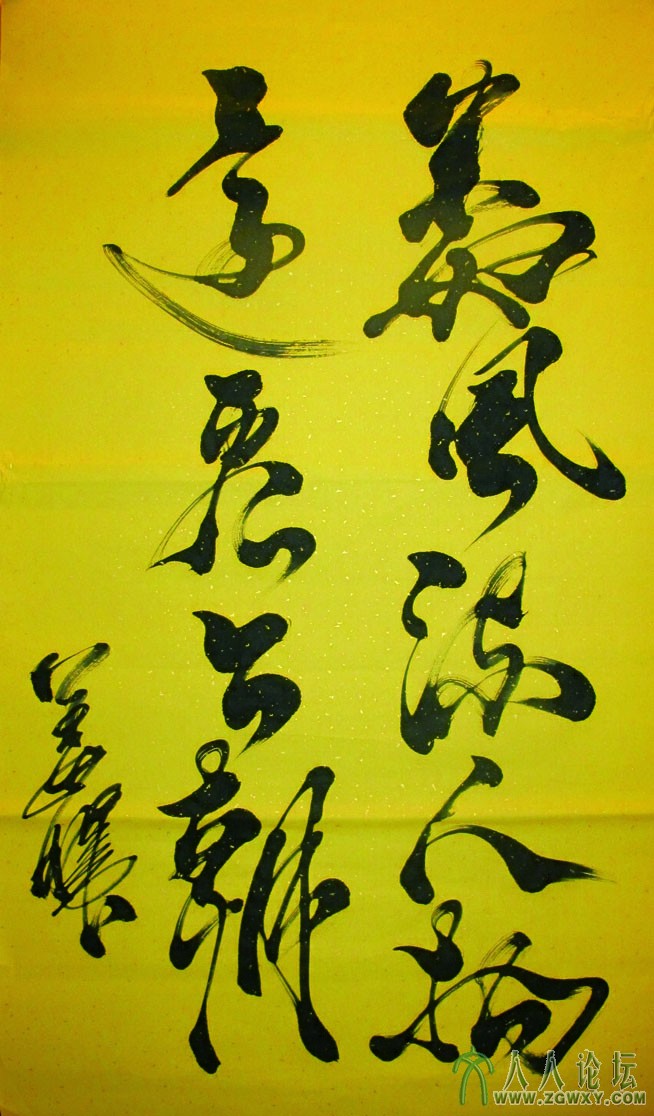 數風流人物
還看今朝
人人论坛
www.ZGWXY.com